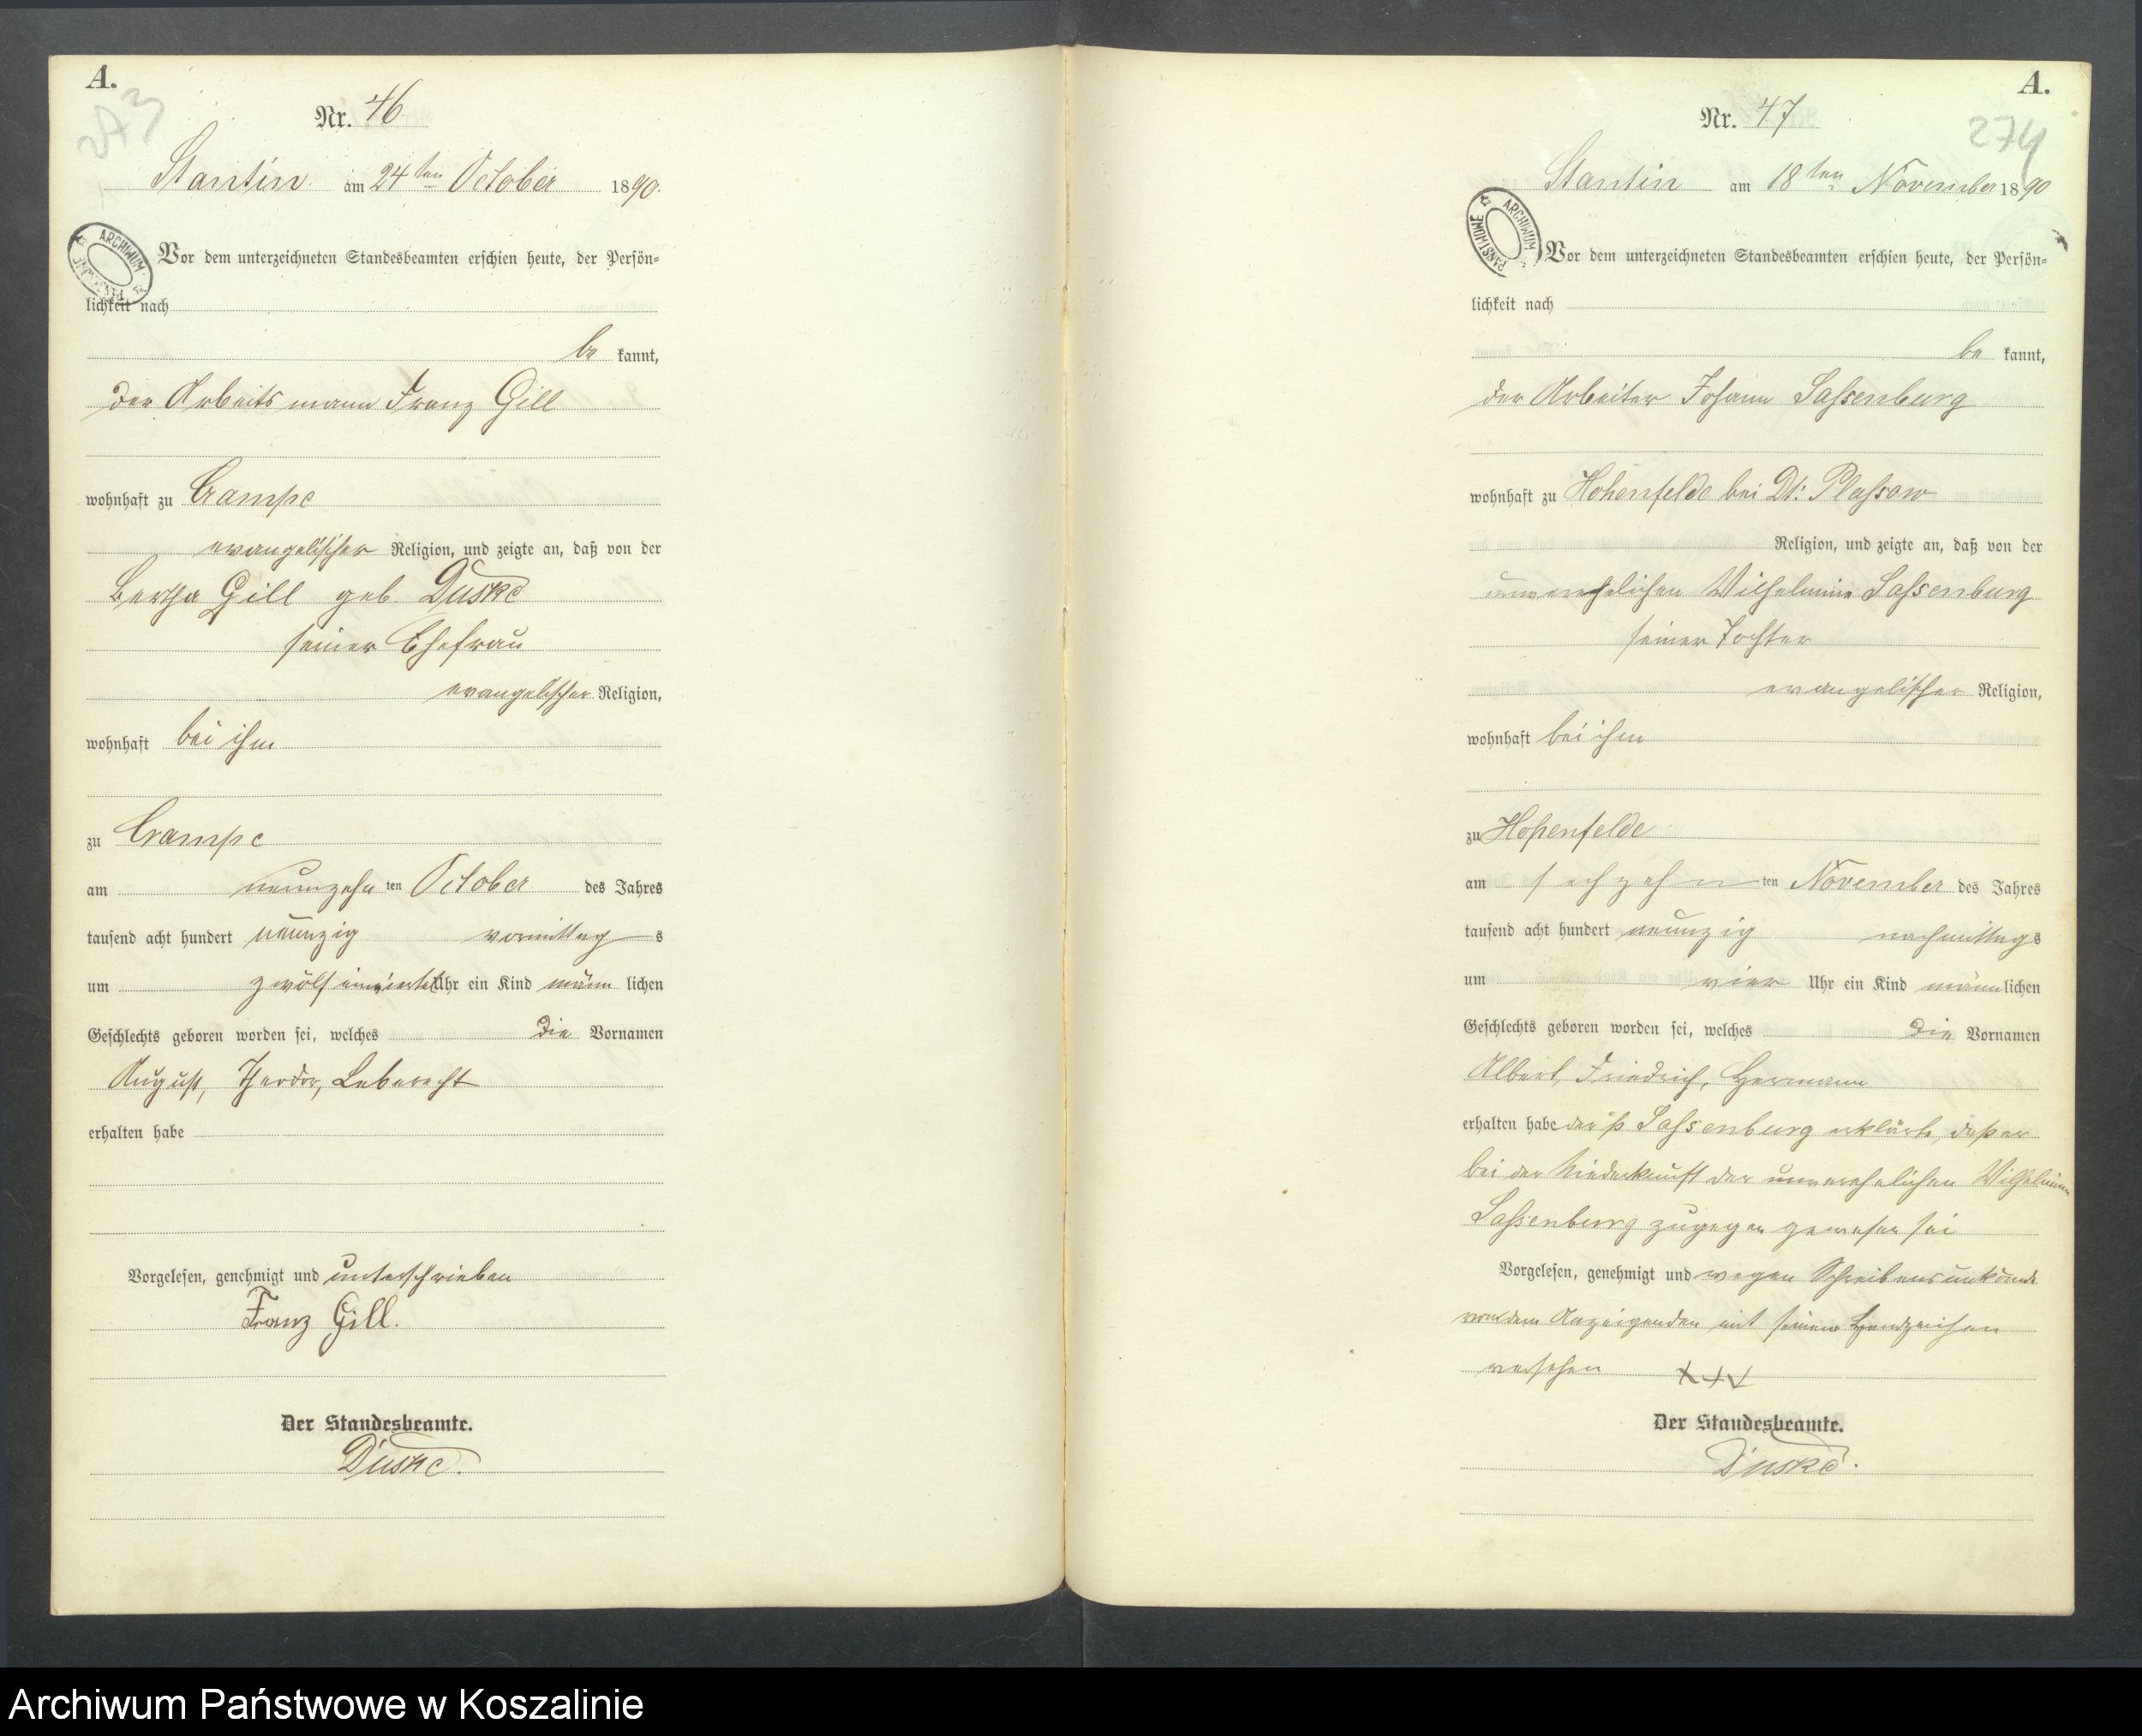 A.
273
Nr. 46
Stantin. am 24ten October 1890.
ARCHIWUM
Vor dem unterzeichneten Standesbeamten erschien heute, der Persön-
lichkeit nach
be kannt,
der Arbeitsmann Franz Gill
wohnhaft zu Crampe
evangelischer Religion, und zeigte an, daß von der
Bertha Gill geb. Duske
seiner Ehefrau
evangelischer Religion,
wohnhaft bei ihm
zu Crampe
am neunzehn ten October des Jahres
tausend acht hundert neunzig vormittag s
um zwölf einviertel Uhr ein Kind männ lichen
Geschlechts geboren worden sei, welches die Vornamen
August, Theodor, Leberecht
erhalten habe
Vorgelesen, genehmigt und unterschrieben
Franz Gill.
Der Standesbeamte.
Duske.
A.
274
Nr. 47
Stantin am 18ten November 1890
ARCHIWUM PAŃSTWOWE
Vor dem unterzeichneten Standesbeamten erschien heute, der Persön-
lichkeit nach
be kannt,
der Arbeiter Johann Sassenburg
wohnhaft zu Hohenfelde bei Dt: Plassow
Religion, und zeigte an, daß von der
unverehelichen Wilhelmine Sassenburg
seiner Tochter
evangelischer Religion,
wohnhaft bei ihm
zu Hohenfelde
am sechzehn ten November des Jahres
tausend acht hundert neunzig nachmittags
um vier Uhr ein Kind männlichen
Geschlechts geboren worden sei, welches die Vornamen
Albert, Friedrich, Hermann
erhalten habe der Sassenburg erklärte, daß er
bei der Niederkunft der unverehelichen Wilhelmine
Sassenburg zugegen gewesen sei
Vorgelesen, genehmigt und wegen Schreibensunkunde
von dem Anzeigenden mit seinem Handzeichen
versehen XXX
Der Standesbeamte.
Duske.
Archiwum Państwowe w Koszalinie